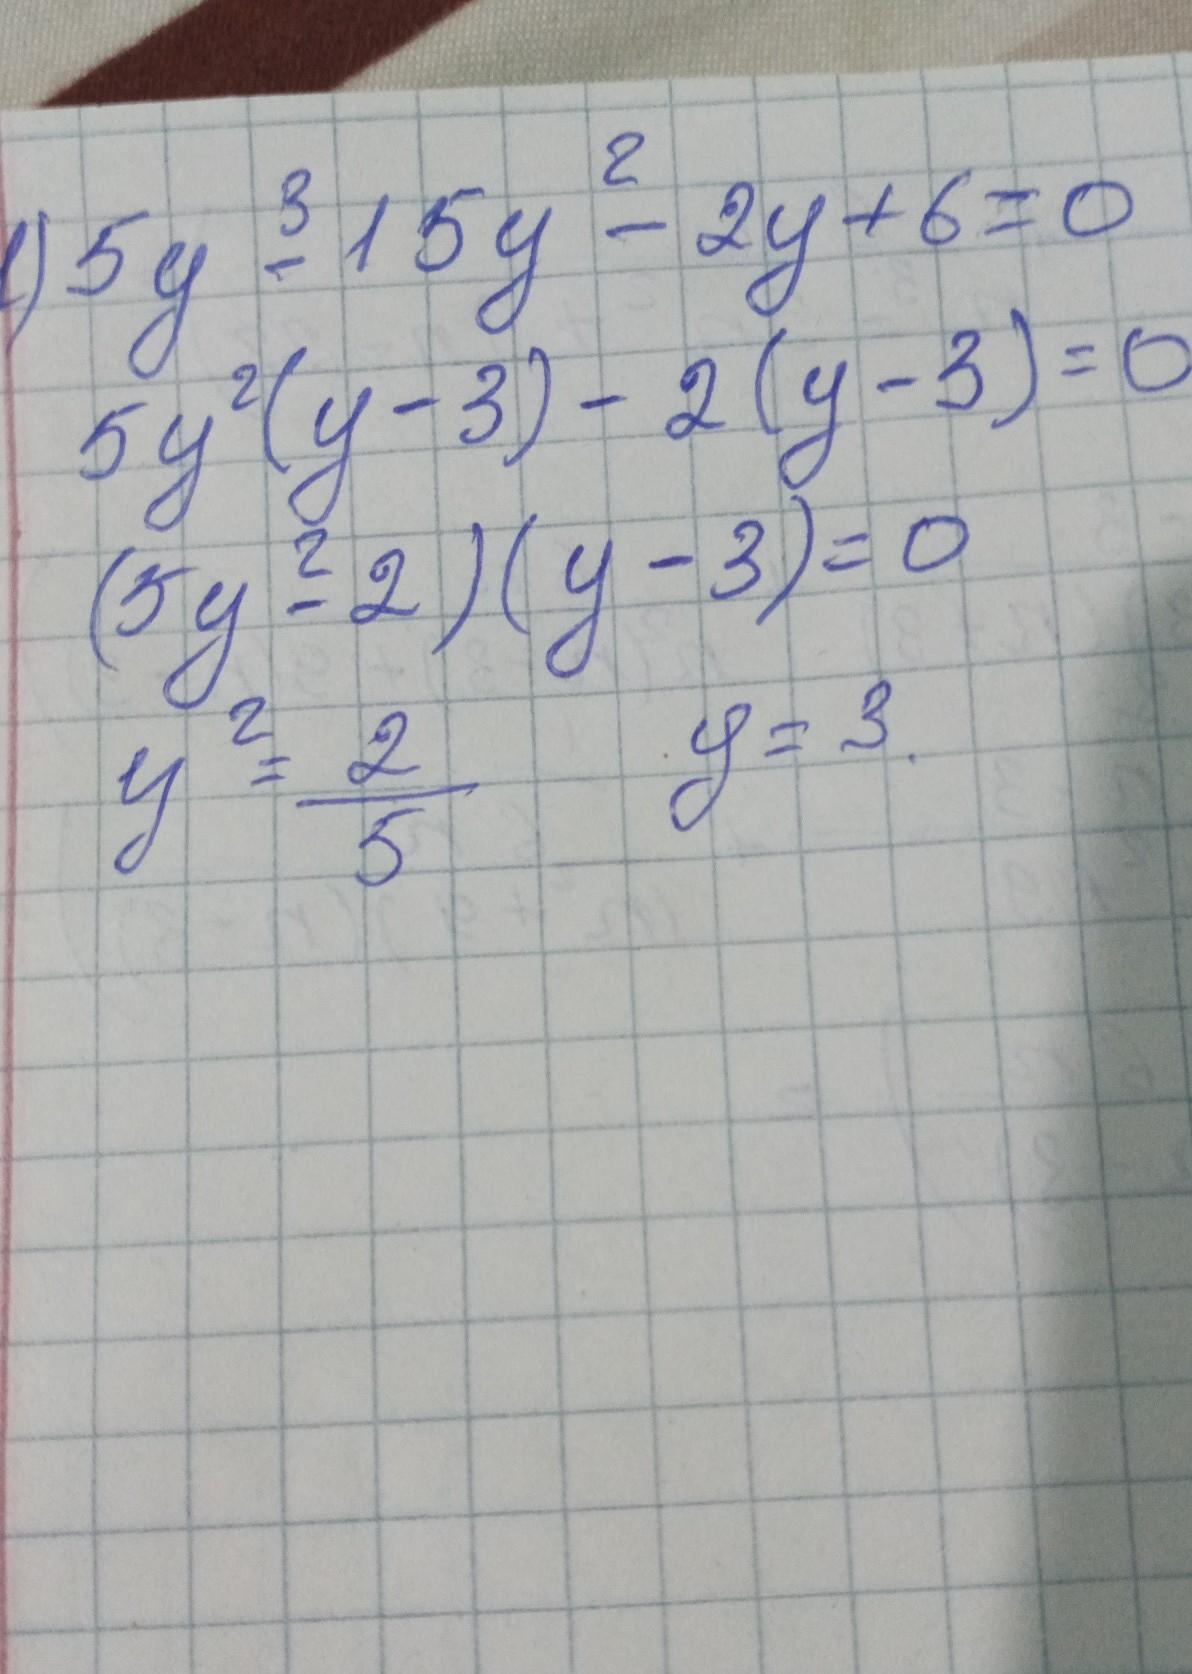 1) 5y³ - 15y² - 2y + 6 = 0
5y²(y - 3) - 2(y - 3) = 0
(5y² - 2)(y - 3) = 0
y² = 2/5 y = 3.